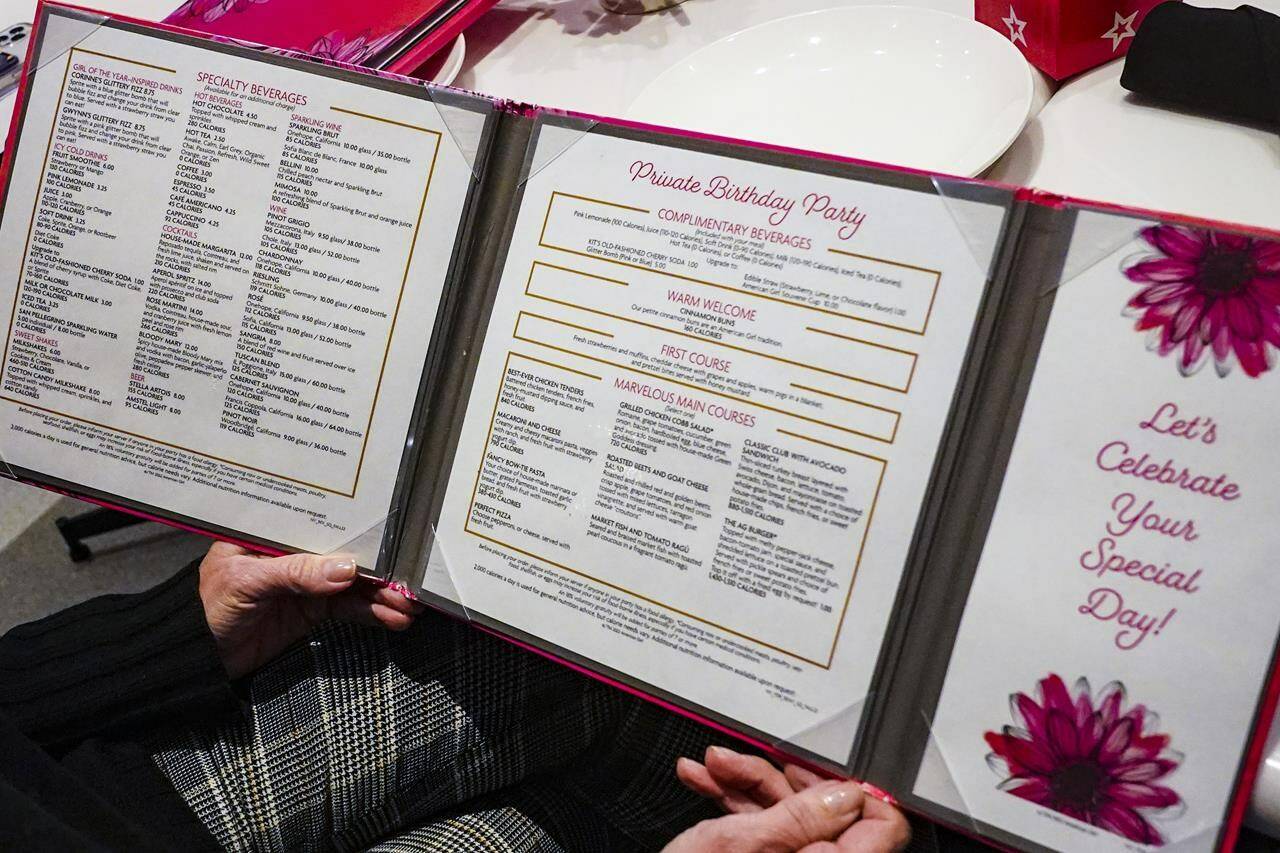 GIRL OF THE YEAR–INSPIRED DRINKS
CORINNE'S GLITTERY FIZZ 8.75
Sprite with a blue glitter bomb that will
bubble fizz and change your drink from clear
to blue. Served with a strawberry straw you
can eat!
GWYNN'S GLITTERY FIZZ 8.75
Sprite with a pink glitter bomb that will
bubble fizz and change your drink from clear
to pink. Served with a strawberry straw you
can eat!
ICY COLD DRINKS
FRUIT SMOOTHIE 6.00
Strawberry or Mango
PINK LEMONADE 3.25
100 CALORIES
JUICE 3.00
Apple, Cranberry, or Orange
110-120 CALORIES
SOFT DRINK 3.25
Coke, Sprite, Orange, or Rootbeer
Diet Coke
0 CALORIES
Upgrade to:
KIT'S OLD-FASHIONED CHERRY SODA 1.00
A blend of cherry syrup with Coke, Diet Coke,
or Sprite
70-160 CALORIES
MILK OR CHOCOLATE MILK 3.00
120-190 CALORIES
ICED TEA 3.25
0 CALORIES
SAN PELLEGRINO SPARKLING WATER
5.00 individual / 8.00 bottle
0 CALORIES
SWEET SHAKES
MILKSHAKES 6.00
Strawberry, Chocolate, Vanilla, or
Cookies & Cream
460-510 CALORIES
COTTON CANDY MILKSHAKE 8.00
Topped with whipped cream, sprinkles, and
cotton candy
640 CALORIES
SPECIALTY BEVERAGES
(Available for an additional charge)
HOT BEVERAGES
HOT CHOCOLATE 4.50
Topped with whipped cream and
sprinkles
280 CALORIES
HOT TEA 2.50
Awake, Calm, Earl Grey, Organic
Chai, Passion, Refresh, Wild Sweet
Orange, or Zen
0 CALORIES
COFFEE 3.00
0 CALORIES
ESPRESSO 3.50
45 CALORIES
CAFÉ AMERICANO 4.25
45 CALORIES
CAPPUCCINO 4.25
92 CALORIES
COCKTAILS
HOUSE-MADE MARGARITA 12.00
Reposado tequila, Cointreau, and
fresh lime juice, shaken and served on
the rocks, with salted rim
210 CALORIES
APEROL SPRITZ 14.00
Aperol apéritif on ice and topped
with prosecco and club soda
220 CALORIES
ROSE MARTINI 14.00
Vodka, Cointreau, house-made sour,
and cranberry juice with fresh lemon
peel and rose rim
266 CALORIES
BLOODY MARY 12.00
Spicy house-made Bloody Mary mix
and vodka with bacon, garlic-jalapeño
olive, peppadew pepper skewer, and
fresh celery
180 CALORIES
BEER
STELLA ARTOIS 8.00
155 CALORIES
AMSTEL LIGHT 8.00
95 CALORIES
SPARKLING WINE
SPARKLING BRUT
Onehope, California 10.00 glass / 35.00 bottle
85 CALORIES
Sofia Blanc de Blanc, France 10.00 glass
85 CALORIES
BELLINI 10.00
Chilled peach nectar and Sparkling Brut
115 CALORIES
MIMOSA 10.00
A refreshing blend of Sparkling Brut and orange juice
100 CALORIES
WINE
PINOT GRIGIO
Mezzacorona, Italy 9.50 glass / 38.00 bottle
Italy 13.00 glass / 52.00 bottle
CHARDONNAY
Onehope, California 10.00 glass / 40.00 bottle
118 CALORIES
RIESLING
Schmitt Sohne, Germany 10.00 glass / 40.00 bottle
ROSÉ
Onehope, California 9.50 glass / 38.00 bottle
Sofia, California 13.00 glass / 52.00 bottle
SANGRIA 8.00
A blend of red wine and fruit served over ice
150 CALORIES
TUSCAN BLEND
Il Poggione, Italy 15.00 glass / 60.00 bottle
125 CALORIES
CABERNET SAUVIGNON
Onehope, California 10.00 glass / 40.00 bottle
120 CALORIES
Francis Coppola, California 16.00 glass / 64.00 bottle
125 CALORIES
PINOT NOIR
Woodbridge, California 9.00 glass / 36.00 bottle
119 CALORIES
Before placing your order, please inform your server if anyone in your party has a food allergy. *Consuming raw or undercooked meats, poultry,
seafood, shellfish, or eggs may increase your risk of food-borne illness, especially if you have certain medical conditions.
An 18% voluntary gratuity will be added for parties of 7 or more.
2,000 calories a day is used for general nutrition advice, but calorie needs vary. Additional nutrition information available upon request.
Private Birthday Party
COMPLIMENTARY BEVERAGES
(Included with your meal)
Pink Lemonade (100 Calories), Juice (110-120 Calories), Soft Drink (0-90 Calories), Milk (120-190 Calories), Iced Tea (0 Calories),
Hot Tea (0 Calories), or Coffee (0 Calories)
Upgrade to:
KIT'S OLD-FASHIONED CHERRY SODA 1.00
Glitter Bomb (Pink or Blue) 5.00
Edible Straw (Strawberry, Lime, or Chocolate flavor) 1.00
American Girl Souvenir Cup 10.00
WARM WELCOME
CINNAMON BUNS
Our petite cinnamon buns are an American Girl tradition.
160 CALORIES
FIRST COURSE
Fresh strawberries and muffins, cheddar cheese with grapes and apples, warm pigs in a blanket,
and pretzel bites served with honey mustard
MARVELOUS MAIN COURSES
(Select one)
BEST-EVER CHICKEN TENDERS
Battered chicken tenders, french fries,
honey mustard dipping sauce, and
fresh fruit
840 CALORIES
MACARONI AND CHEESE
Creamy and cheesy macaroni pasta, veggies
with ranch, and fresh fruit with strawberry
yogurt dip
790 CALORIES
FANCY BOW-TIE PASTA
Your choice of house-made marinara or
butter, grated Parmesan, toasted garlic
bread, and fresh fruit with strawberry
yogurt dip
PERFECT PIZZA
Choose pepperoni, or cheese, served with
fresh fruit
GRILLED CHICKEN COBB SALAD*
Romaine, grape tomatoes, cucumber, green
onion, bacon, hardboiled egg, blue cheese,
and avocado tossed with house-made Green
Goddess dressing
720 CALORIES
ROASTED BEETS AND GOAT CHEESE
SALAD
Roasted and chilled red and golden beets,
crisp apple, grape tomatoes, and red onion
tossed with mixed lettuces, tarragon
vinaigrette, and served with warm goat
cheese "croutons"
MARKET FISH AND TOMATO RAGÙ
Seared and braised market fish with toasted
pearl couscous in a fragrant tomato ragù
CLASSIC CLUB WITH AVOCADO
SANDWICH
Thin-sliced turkey breast layered with
Swiss cheese, bacon, lettuce, tomato,
avocado, Dijon, and mayonnaise on toasted
whole-grain bread. Served with a choice of
house-made chips, french fries, or sweet
potato fries
880-1,510 CALORIES
THE AG BURGER*
Topped with melty pepper-jack cheese,
bacon-tomato jam, special sauce, and
shredded lettuce on a toasted pretzel bun.
Served with pickle spears and choice of
french fries or sweet potato fries.
Top it off with a fried egg by request! 1.00
1,430-1,510 CALORIES
Before placing your order, please inform your server if anyone in your party has a food allergy. *Consuming raw or undercooked meats, poultry, sea-
food, shellfish, or eggs may increase your risk of food-borne illness, especially if you have certain medical conditions.
An 18% voluntary gratuity will be added for parties of 7 or more
2,000 calories a day is used for general nutrition advice, but calorie needs vary. Additional nutrition information available upon request.
Let's
Celebrate
Your
Special
Day!